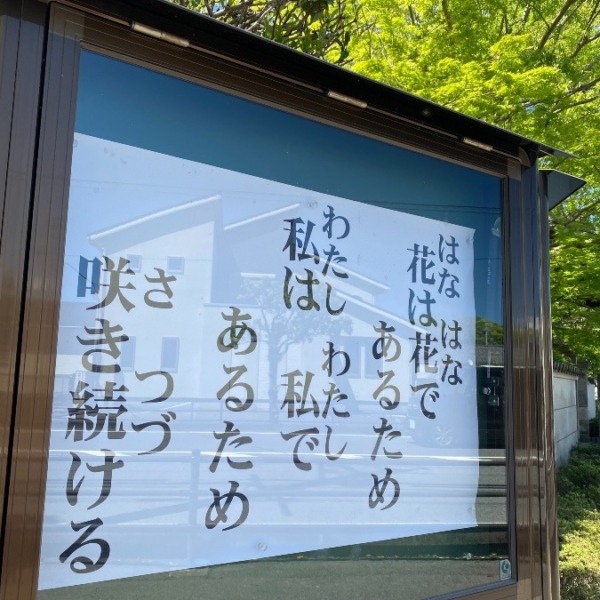 はな はな
花は花で
あるため
わたし わたし
私は 私で
あるため
さ つづ
咲き続ける